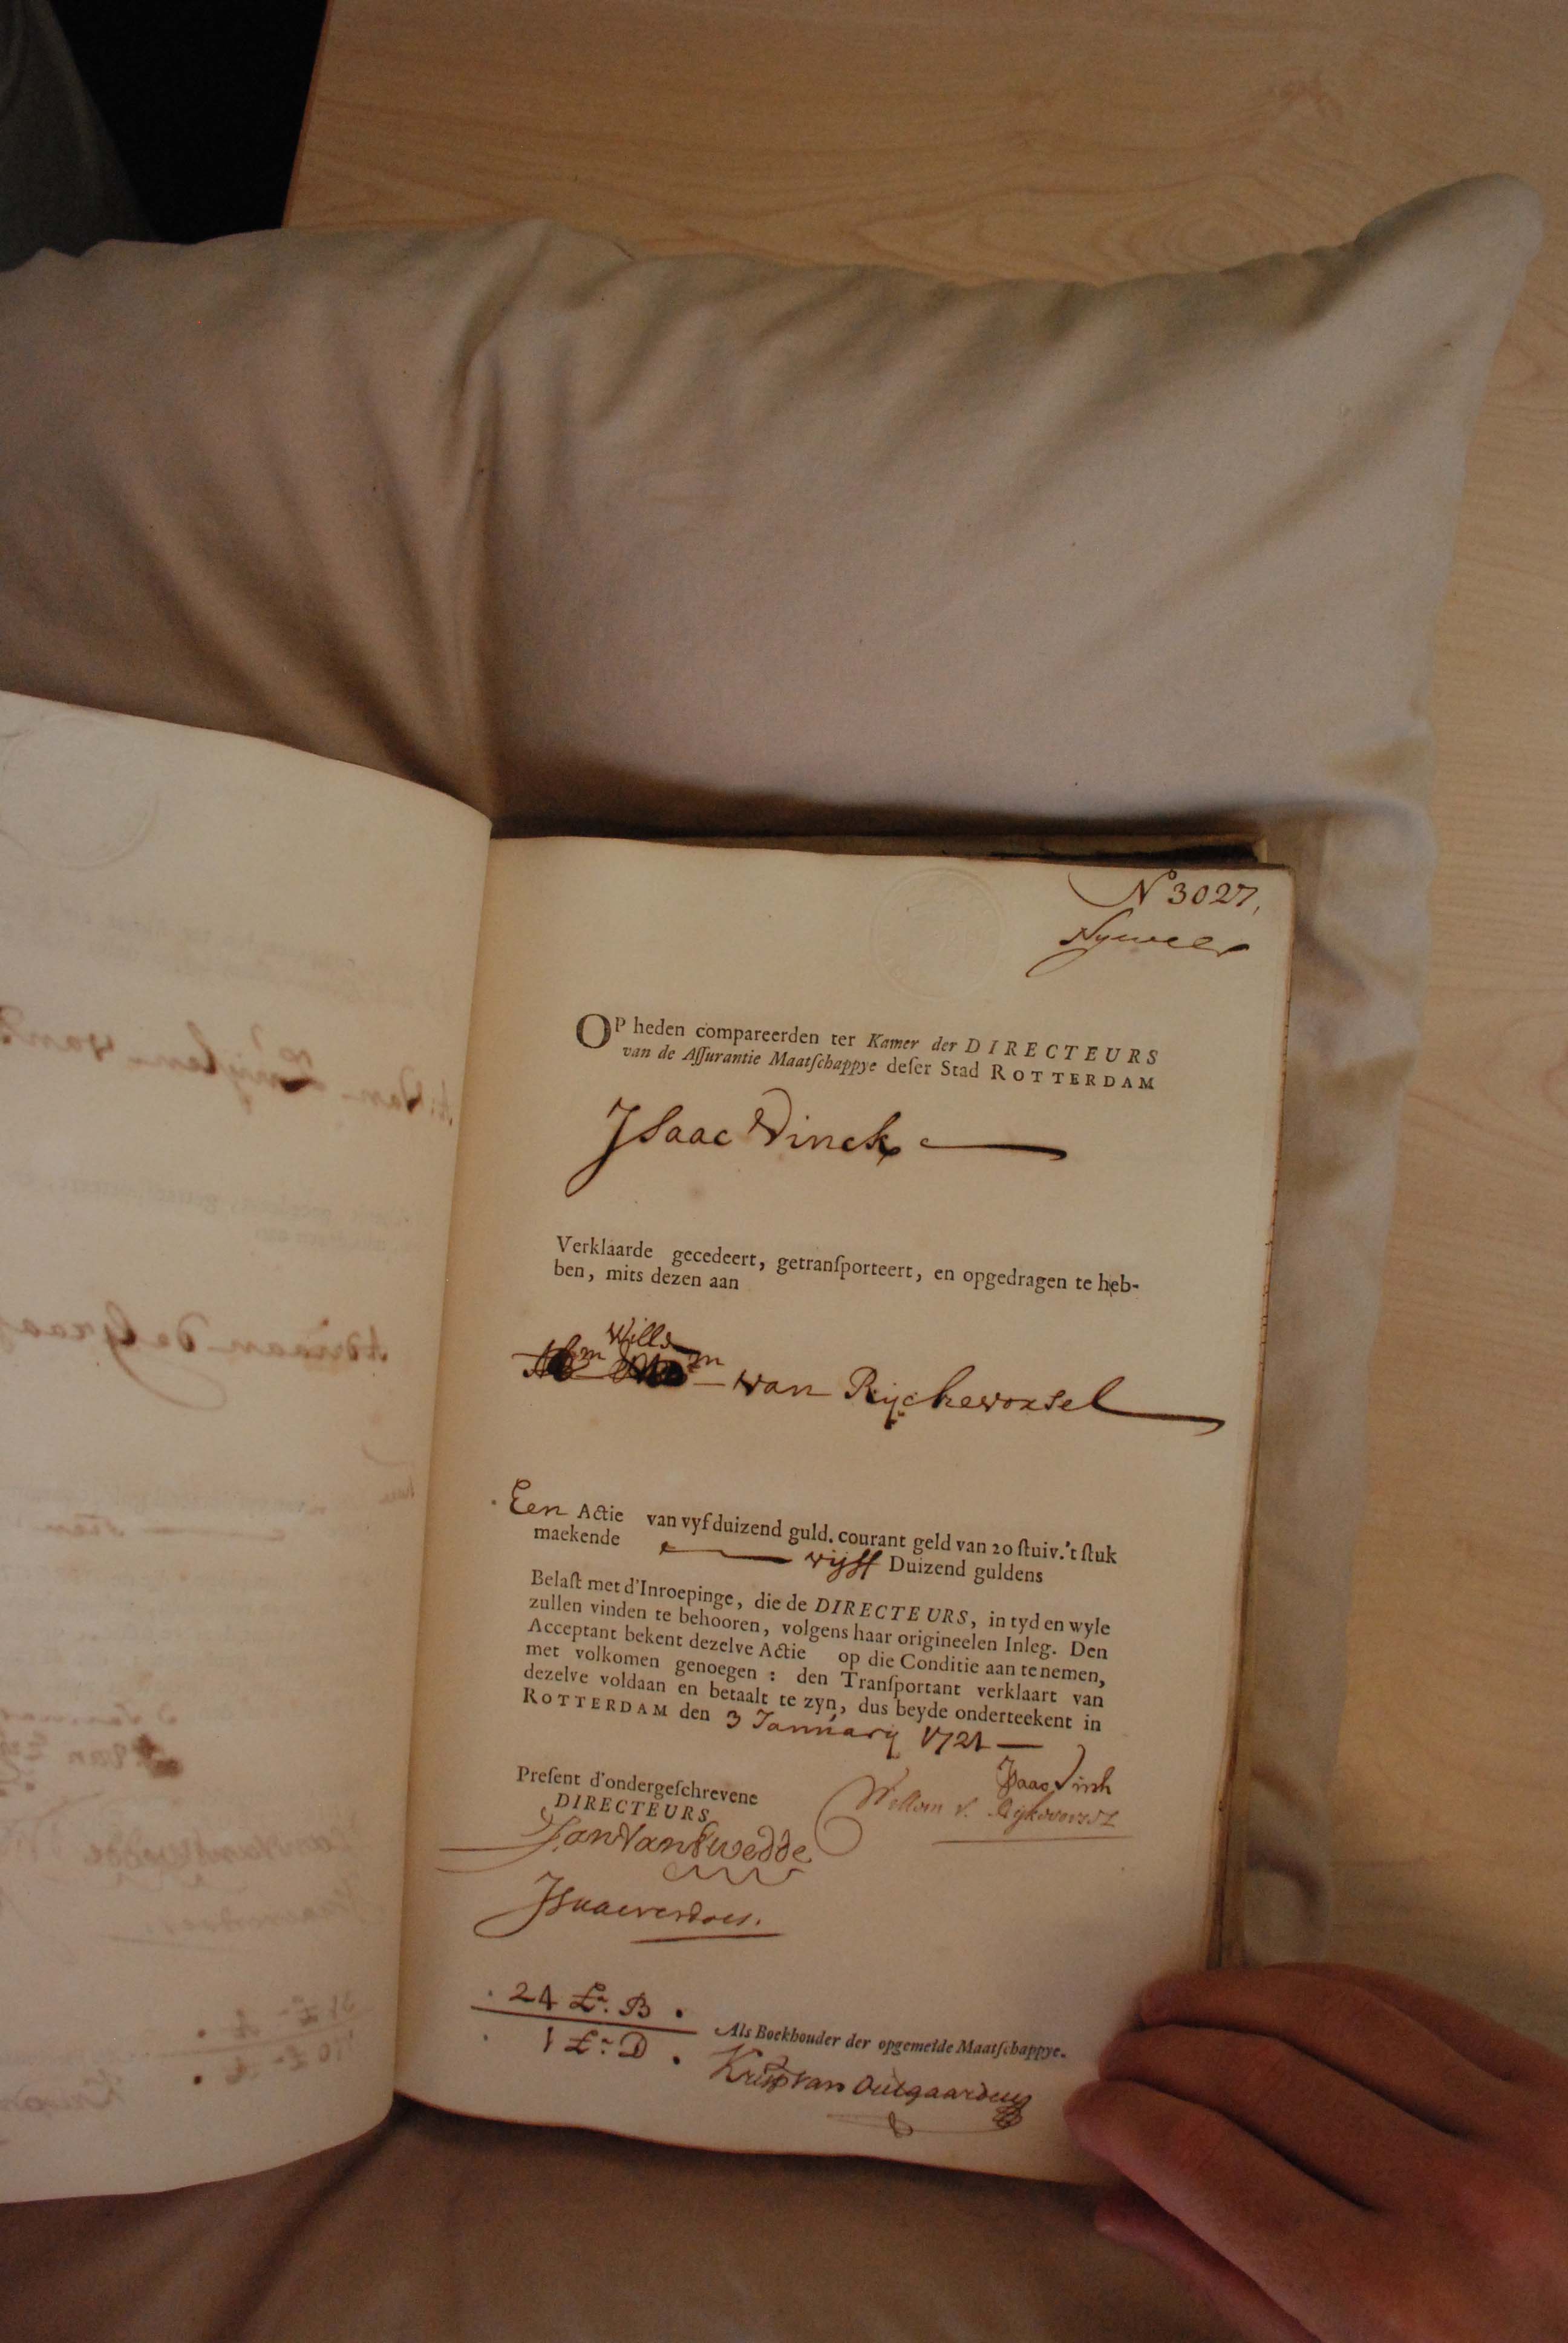 N 3027,
OP heden compareerden ter Kamer der DIRECTEURS
van de Aſſurantie Maatſchappye deſer Stad ROTTERDAM
Isaac Vinck
Verklaarde gecedeert, getranſporteert, en opgedragen te heb-
ben, mits dezen aan
Will
m van Ryckevorsel
Een Actie van vyf duizend guld. courant geld van 20 ſtuiv. 't ſtuk
maekende vijff Duizend guldens
Belaſt met d'Inroepinge, die de DIRECTEURS, in tyd en wyle
zullen vinden te behooren, volgens haar origineelen Inleg. Den
Acceptant bekent dezelve Actie op die Conditie aan te nemen,
met volkomen genoegen : den Tranſportant verklaart van
dezelve voldaan en betaalt te zyn, dus beyde onderteekent in
ROTTERDAM den 3 January 1721
Isaac Vinck
Willem v. Rijkevorsel
Preſent d'ondergeſchrevene
DIRECTEURS
Jan Van
24 B
1 D
Als Boekhouder der opgemelde Maatſchappye.
van